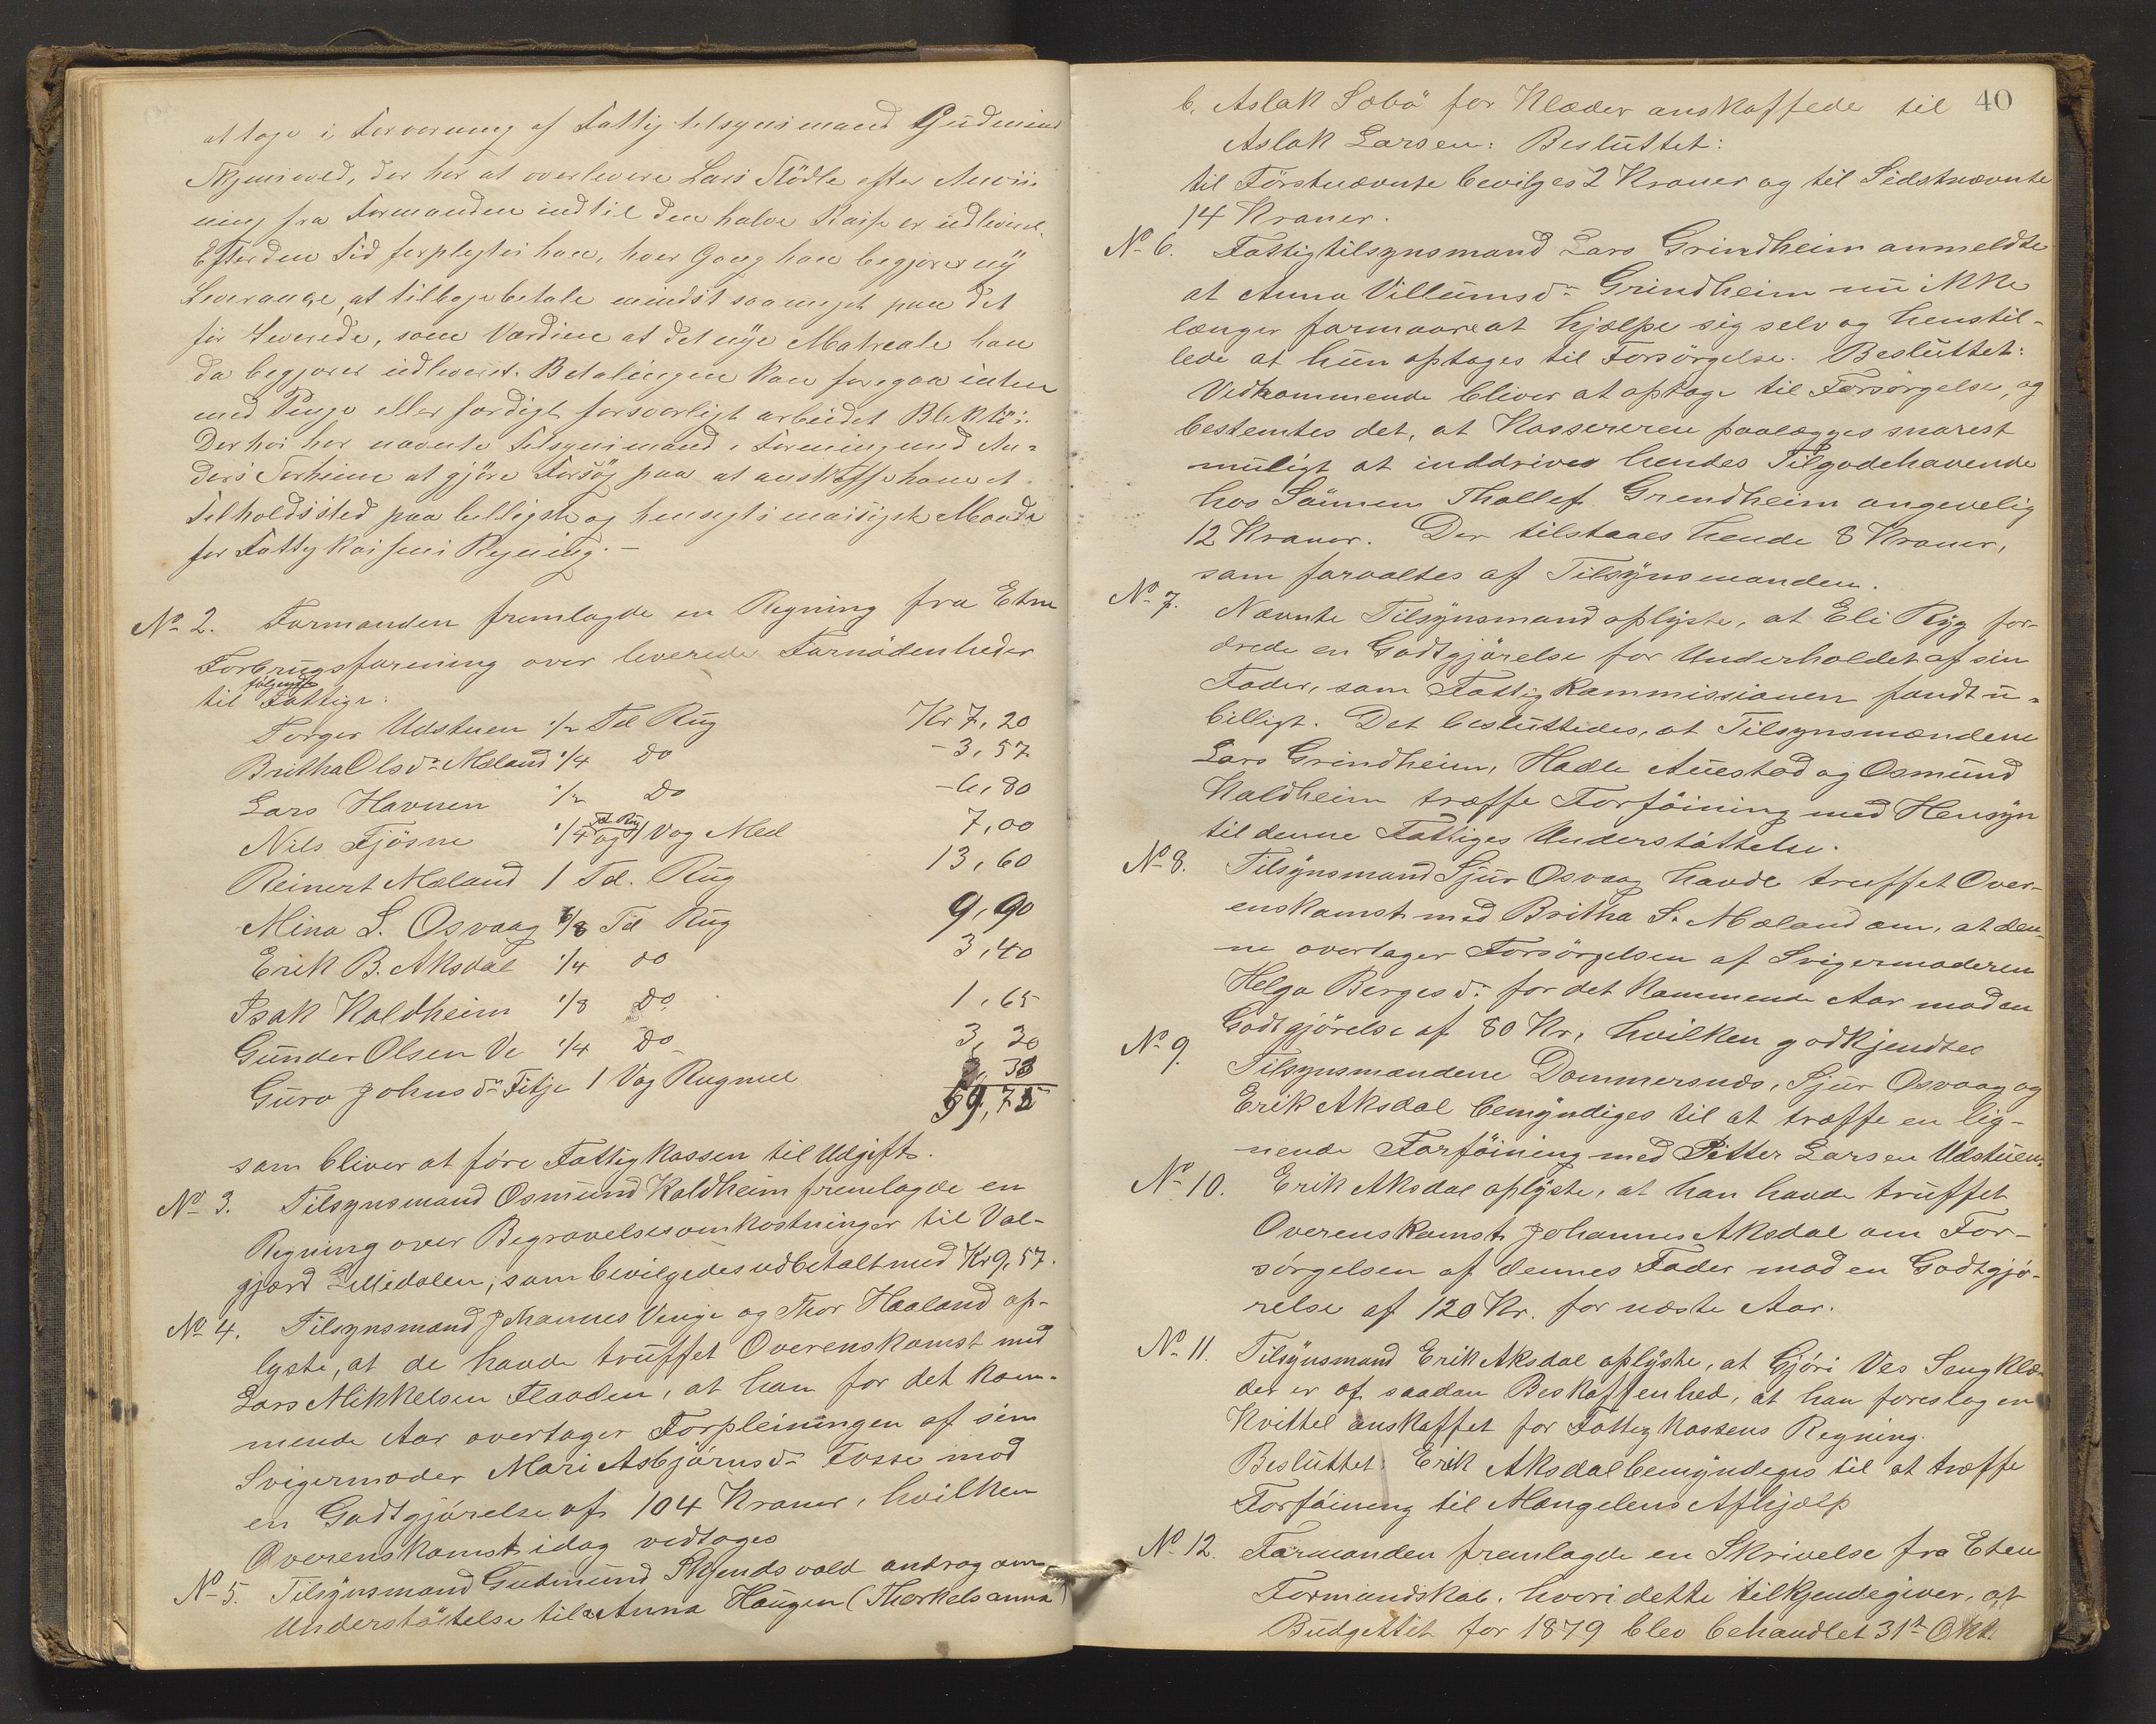 at tage i Forvaring af Fattigtilsynsmand Gudmund
Skjensvold, der har at overlevere Lars Flödle efter Anviis-
ning fra Formanden indtil den halve Kasse er udleveret.
Efter den Tid forpligtes han, hver Gang han begjærer ny
Leverance, at tilbagebetale mindst saameget paa det
før leverede, som Værdien at det nye Matreale han
da begjærer udleveret. Betalingen kan foregaa enten
med Penge eller færdigt forsvarligt arbeidet Bliktöi.
Derhos har nævnte Tilsynsmand i Forening med An-
ders Sørheim at gjöre Forsög paa at anskaffe ham et
Tilholdssted paa billigste og hensigtsmæssigste Maade
for Fattigkassens Regning. —
No 2. Formanden fremlagde en Regning fra Etne
Forbrugsforening over leverede Fornödenheder
til følgende Fattige:
Torger Udstuen 1/2 Td Rug Kr 7,20
Britha Olsdr Mæland 1/4 Do - 3,57
Lars Havnen 1/2 Do - 6,80
Nils Fjösne 1/4 Td Rug og 1 Vog Mel 7,00
Reinert Mæland 1 Td. Rug 13,60
Mina S. Osvaag 6/8 Td Rug 9,90
Erik B. Aksdal 1/4 do 3,40
Isak Kaldheim 1/8 Do 1,65
Gunder Olsen Ve 1/4 Do 3,30
Guro Johnsdr Fitje 1 Vog Rugmel 3,33
59,75
som bliver at føre Fattigkassen til Udgift.
No 3. Tilsynsmand Osmund Kaldheim fremlagde en
Regning over Begravelsesomkostninger til Val-
gjærd Lillidalen, som bevilgedes udbetalt med Kr 9,57.
No 4. Tilsynsmand Johannes Vinje og Thor Haaland op-
lyste, at de havde truffet Overenskomst med
Lars Mikkelsen Flaaden, at han for det kom-
mende Aar overtager Forpleiningen af sin
Svigermoder Mari Asbjörnsdr Fosse mod
en Godtgjörelse af 104 Kroner, hvilken
Overenskomst idag vedtoges
No 5. Tilsynsmand Gudmund Skjendsvold androg om
Understöttelse til a. Anna Haugen (Thorkelsanna)
40
b. Aslak Sæbö for Klæder anskaffede til
Aslak Larsen: Besluttet:
til Förstnævnte bevilges 2 Kroner og til Sidstnævnte
14 Kroner.
No 6. Fattigtilsynsmand Lars Grindheim anmeldte
at Anna Villumsdr Grindheim nu ikke
længer formaar at hjælpe sig selv og henstil-
lede at hun optages til Forsörgelse. Besluttet:
Vedkommende bliver at optage til Forsörgelse, og
bestemtes det, at Kassereren paalægges snarest
muligt at inddrive hendes Tilgodehavende
hos Sönnen Thollef Grindheim angivelig
12 Kroner. Der tilstaaes hende 8 Kroner,
som forvaltes af Tilsynsmanden.
No 7. Nævnte Tilsynsmand oplyste, at Eli Ryg for-
drede en Godtgjörelse for Underholdet af sin
Fader, som Fattigkommissionen fandt u-
billigt. Det besluttedes, at Tilsynsmændene
Lars Grindheim, Hadle Auestad og Osmund
Kaldheim træffe Forföining med Hensyn
til denne Fattiges Understöttelse.
No 8. Tilsynsmand Sjur Osvaag havde truffet Over-
enskomst med Britha S. Mæland om, at den-
ne overtager Forsörgelsen af Svigermoderen
Helga Bergesdr for det kommende Aar mod en
Godtgjörelse af 80 Kr, hvilken godkjendtes
No 9. Tilsynsmændene Dommersnæs, Sjur Osvaag og
Erik Aksdal bemyndiges til at træffe en lig-
nende Forföining med Pitter Larsen Udstuen.
No 10. Erik Aksdal oplyste, at han havde truffet
Overenskomst Johannes Aksdal om For-
sörgelsen af dennes Fader mod en Godtgjö-
relse af 120 Kr. for næste Aar.
No 11. Tilsynsmand Erik Aksdal oplyste, at Gjöri Ves Sengklæ-
der er af saadan Beskaffenhed, at han foreslog en
Kvittel anskaffet for Fattigkassens Regning.
Besluttet: Erik Aksdal bemyndiges til at træffe
Forföining til Mangelens Afhjælp
No 12. Formanden fremlagde en Skrivelse fra Etne
Formandskab, hvori dette tilkjendegiver, at
Budgettet for 1879 blev behandlet 31te Okt.